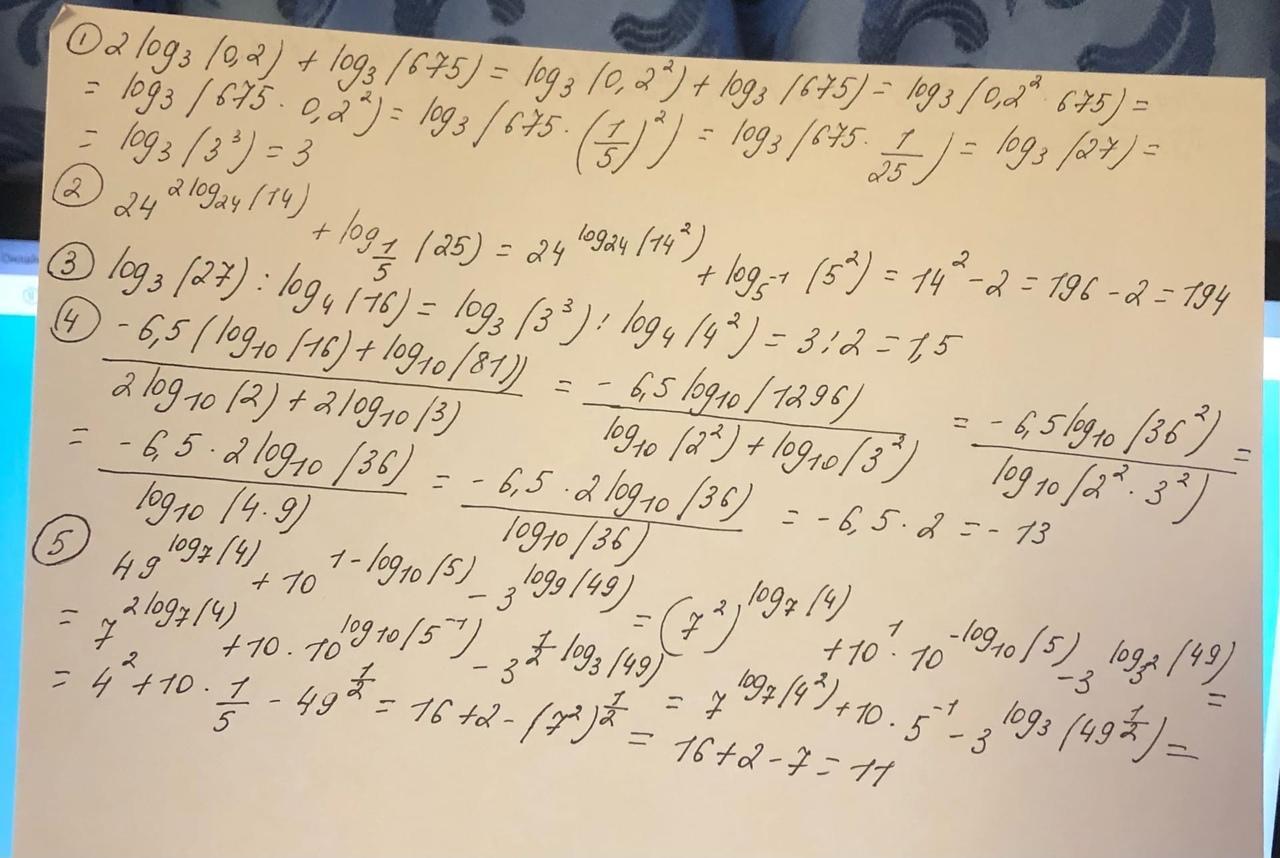 ① 2 log₃ (0,2) + log₃ (675) = log₃ (0,2²) + log₃ (675) = log₃ (0,2² · 675) =
= log₃ (675 · 0,2²) = log₃ (675 · (1/5)²) = log₃ (675 · 1/25) = log₃ (27) =
= log₃ (3³) = 3
② 24^(2 log₂₄ (14)) + log_(1/5) (25) = 24^(log₂₄ (14²)) + log_(5⁻¹) (5²) = 14² - 2 = 196 - 2 = 194
③ log₃ (27) : log₄ (16) = log₃ (3³) : log₄ (4²) = 3 : 2 = 1,5
④ (-6,5 (log₁₀ (16) + log₁₀ (81)))/(2 log₁₀ (2) + 2 log₁₀ (3)) = (-6,5 log₁₀ (1296))/(log₁₀ (2²) + log₁₀ (3²)) = (-6,5 log₁₀ (36²))/(log₁₀ (2² · 3²)) =
= (-6,5 · 2 log₁₀ (36))/(log₁₀ (4 · 9)) = (-6,5 · 2 log₁₀ (36))/(log₁₀ (36)) = -6,5 · 2 = -13
⑤ 49^(log₇ (4)) + 10^(1 - log₁₀ (5)) - 3^(log₉ (49)) = (7²)^(log₇ (4)) + 10¹ · 10^(-log₁₀ (5)) - 3^(log_(3²) (49)) =
= 7^(2 log₇ (4)) + 10 · 10^(log₁₀ (5⁻¹)) - 3^(1/2 log₃ (49)) = 7^(log₇ (4²)) + 10 · 5⁻¹ - 3^(log₃ (49^(1/2))) =
= 4² + 10 · 1/5 - 49^(1/2) = 16 + 2 - (7²)^(1/2) = 16 + 2 - 7 = 11